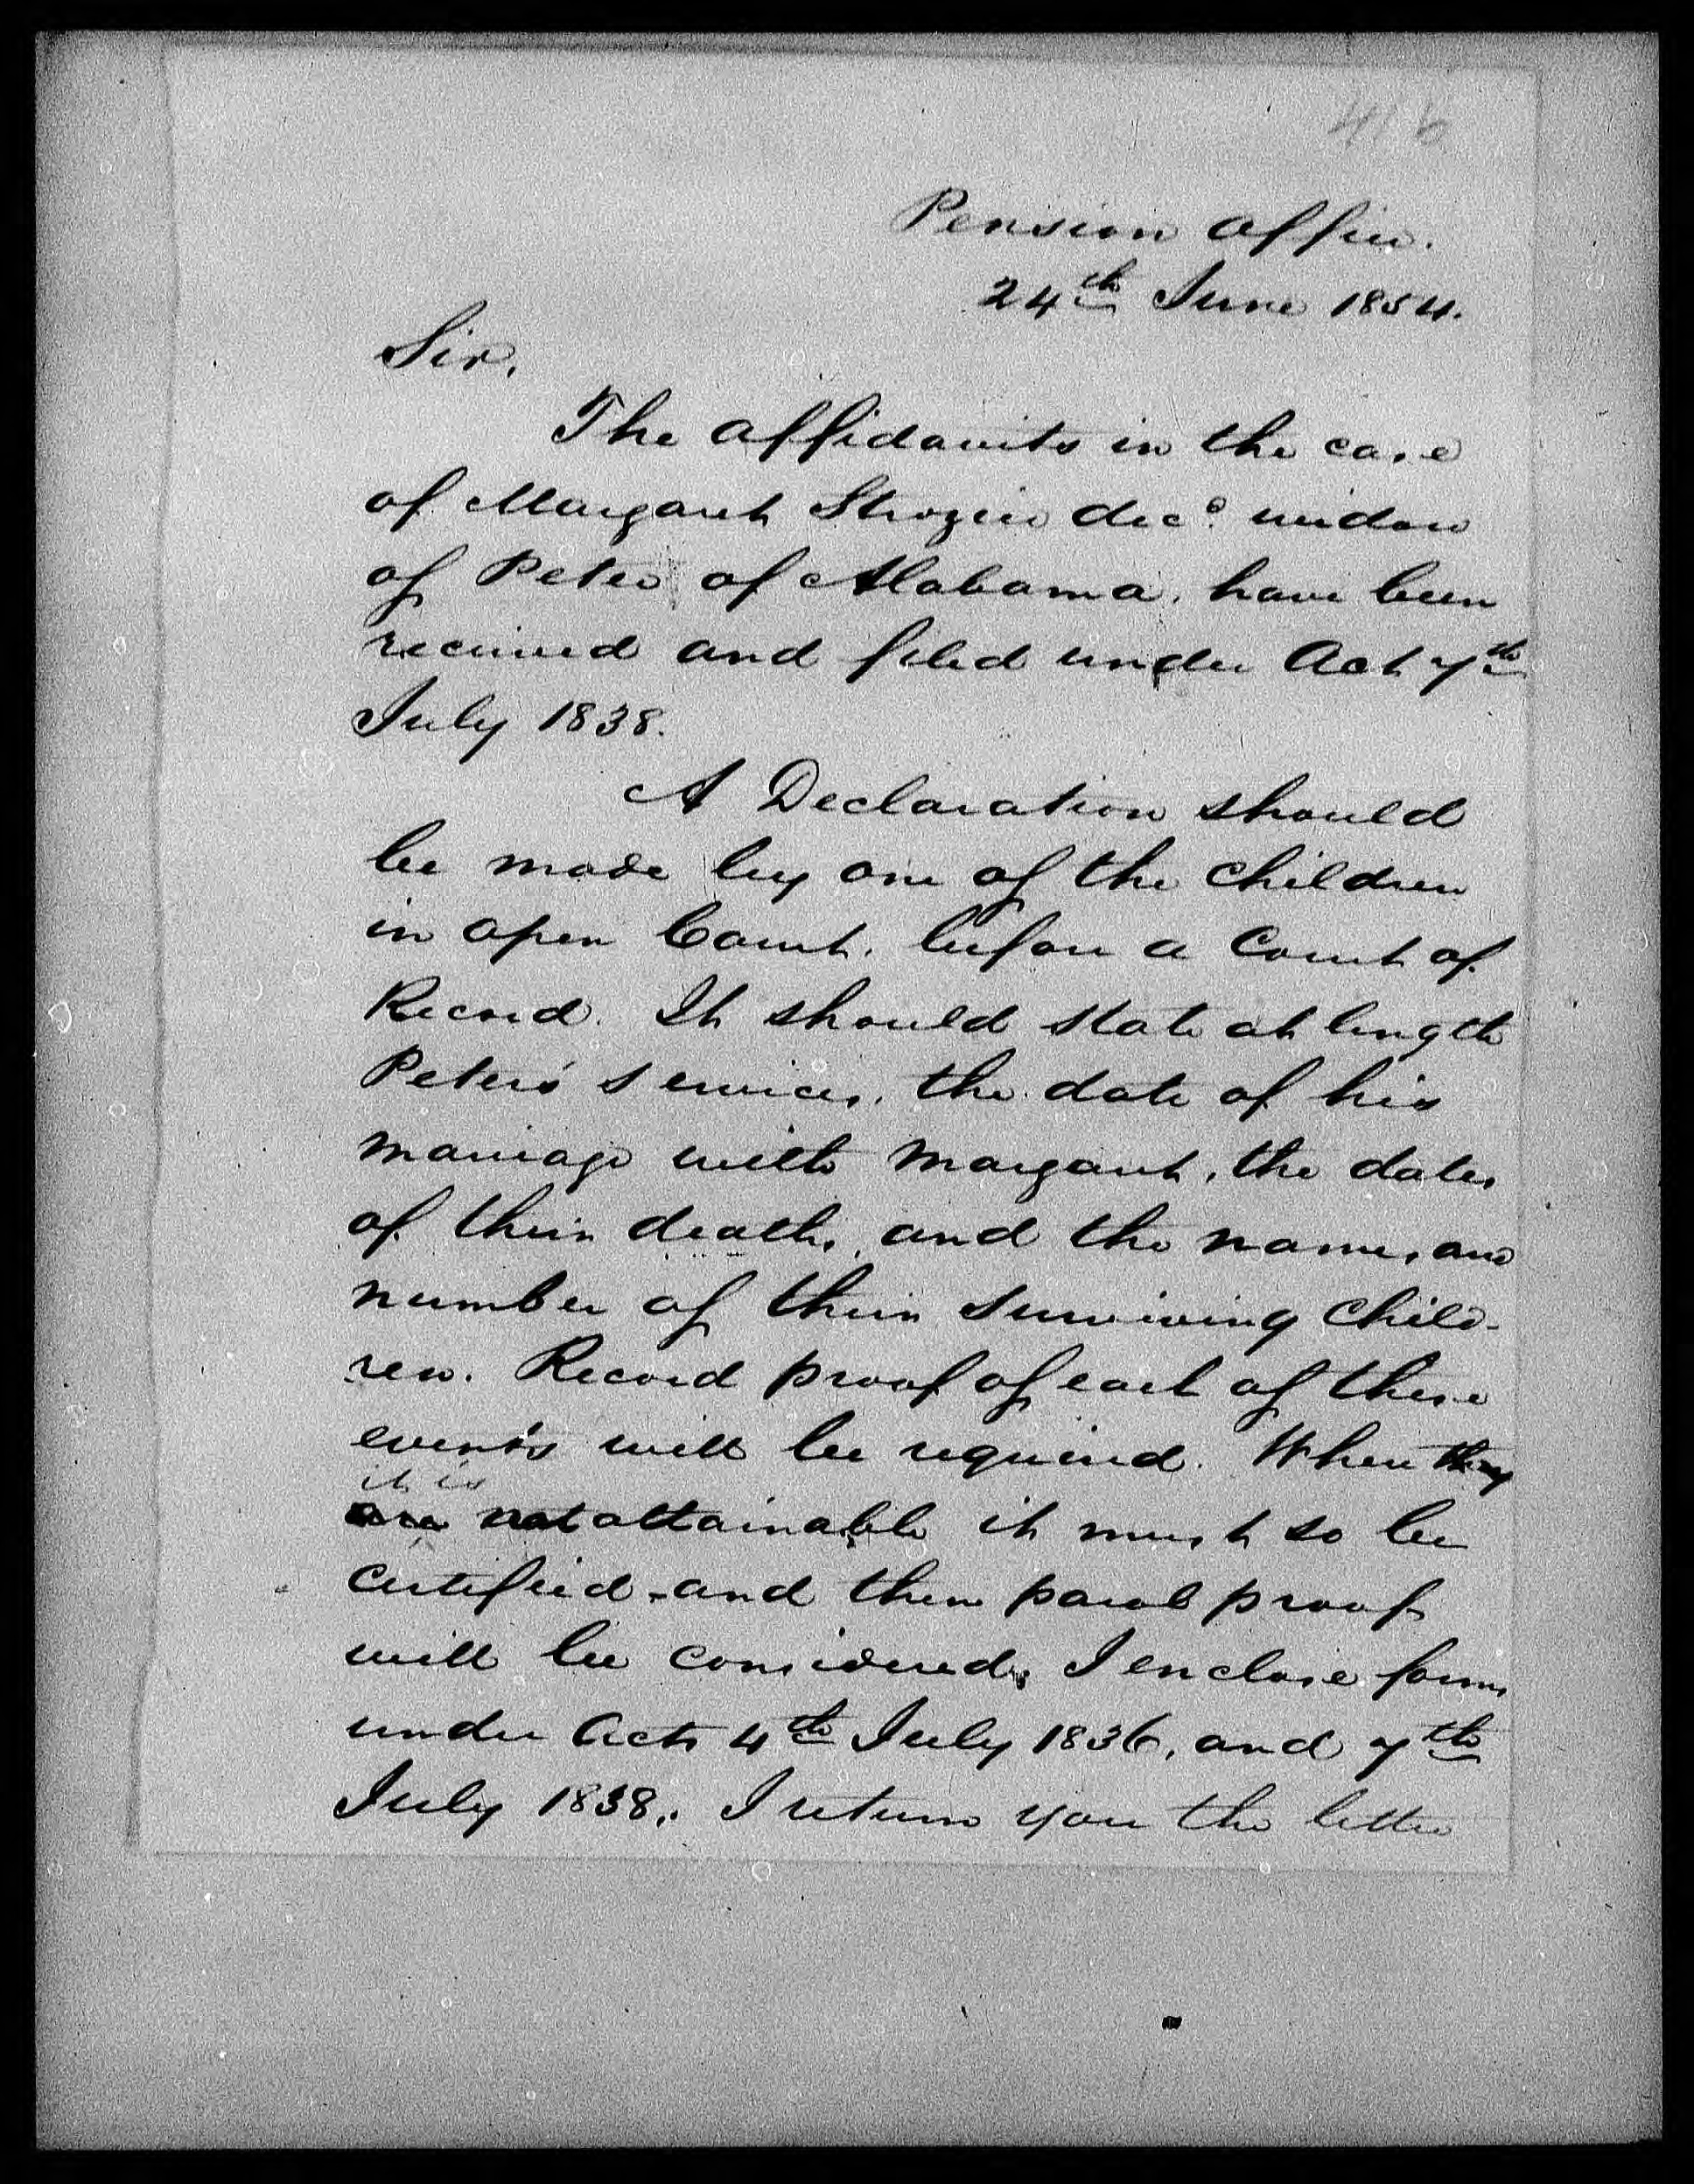 416
Pension Office.
24th June 1854.
Sir,
The affidavits in the case
of Margaret Strozier decd. widow
of Peter of Alabama, have been
received and filed under Act 7th
July 1838.
A Declaration should
be made by one of the children
in open Court, before a Court of
Record. It should state at length
Peter's services, the date of his
marriage with Margaret, the dates
of their deaths, and the names and
number of their surviving child-
ren. Record proof of each of these
events will be required. When they
it is
are not attainable it must so be
certified, and then parol proof
will be considered. I enclose forms
under Acts 4th July 1836, and 7th
July 1838. I return you the letter